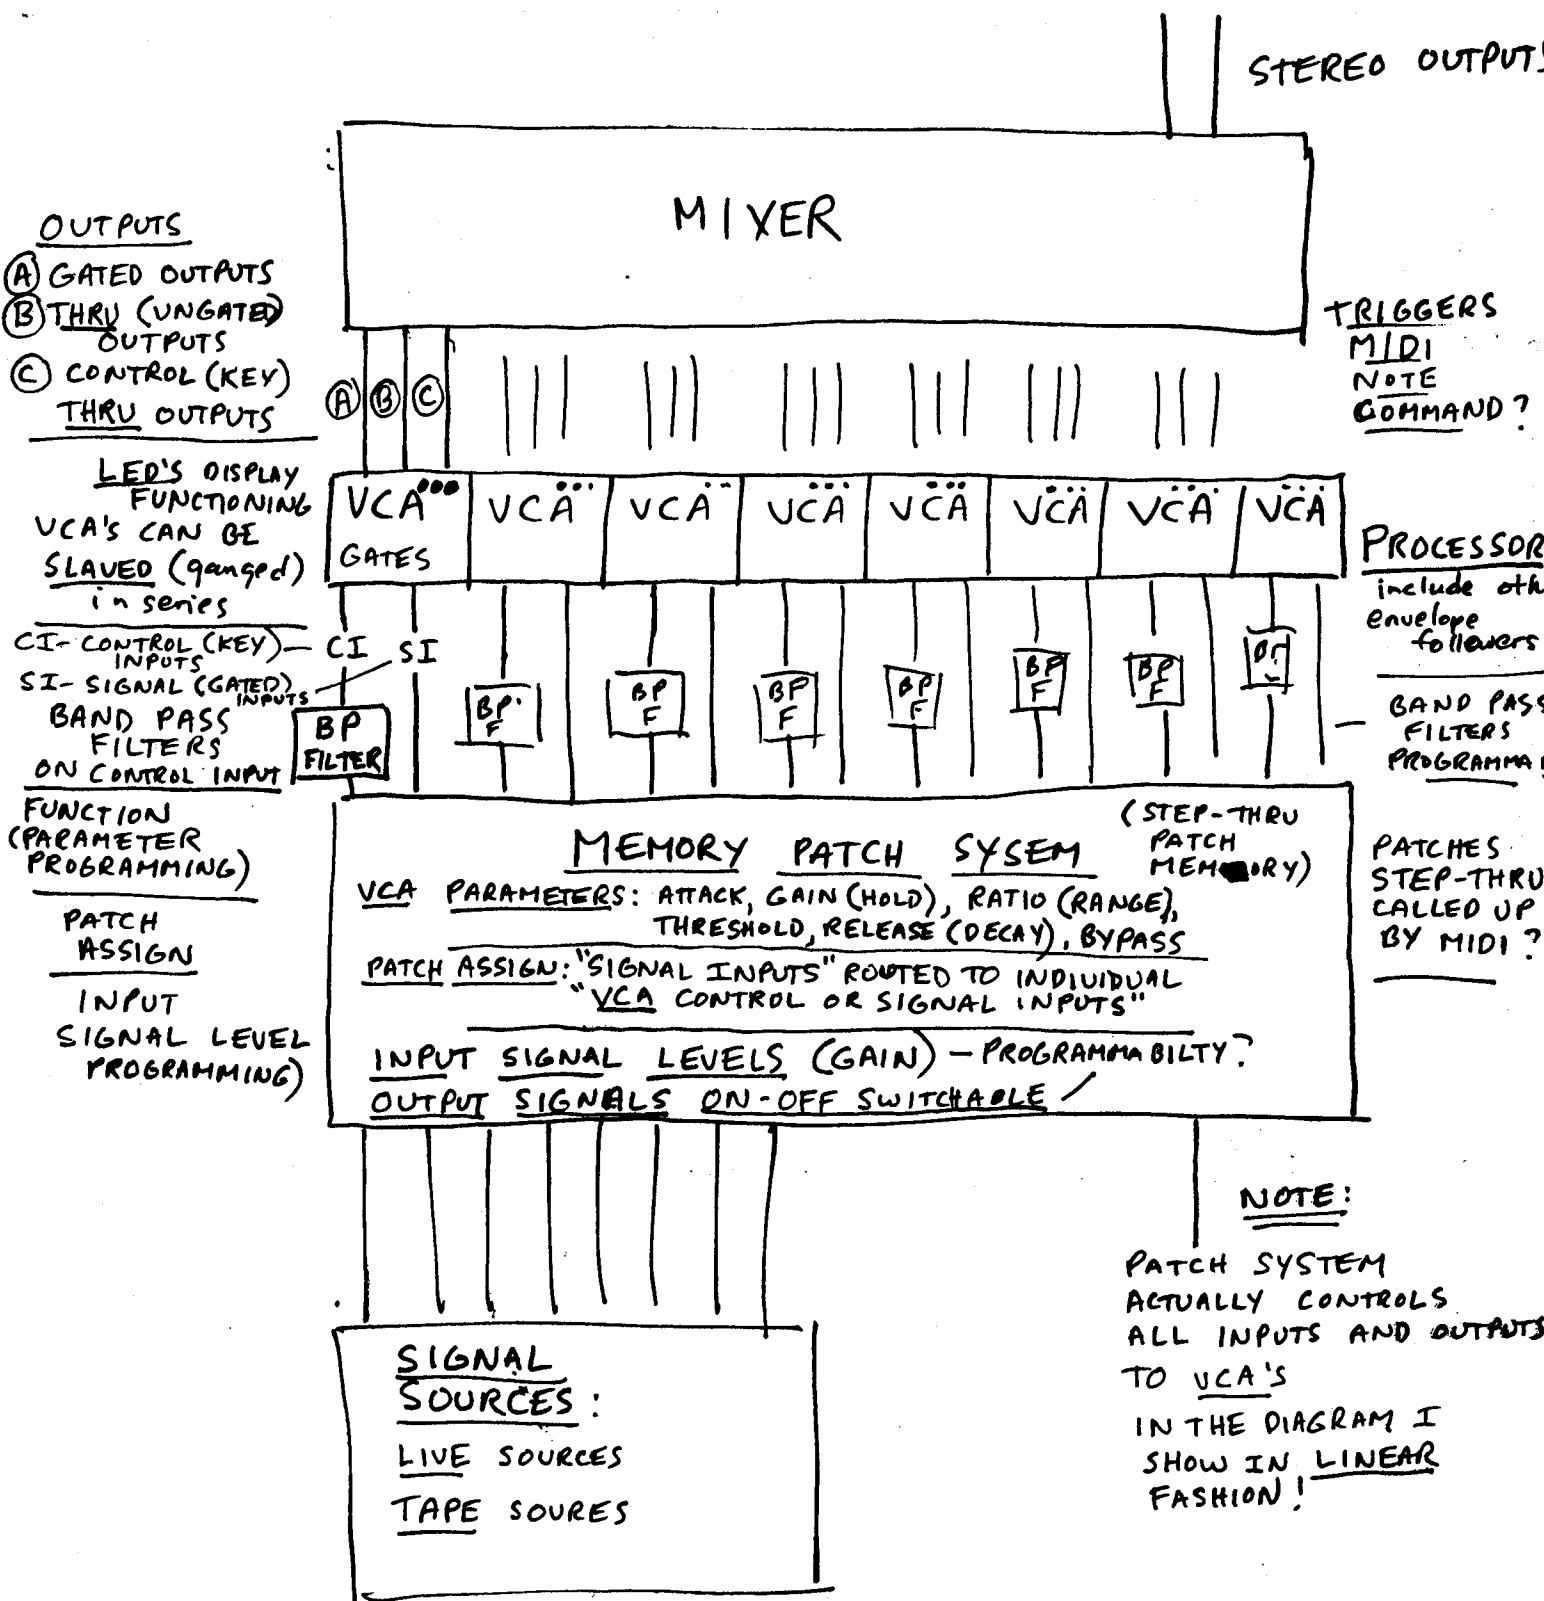 STEREO OUTPUTS
MIXER
OUTPUTS
(A) GATED OUTPUTS
(B) THRU (UNGATED)
OUTPUTS
(C) CONTROL (KEY)
THRU OUTPUTS
A B C
TRIGGERS
MIDI
NOTE
COMMAND?
LED'S DISPLAY
FUNCTIONING
VCA'S CAN BE
SLAVED (ganged)
in series
VCA
GATES
VCA
VCA
VCA
VCA
VCA
VCA
VCA
PROCESSOR
include
envelope
followers
CI- CONTROL (KEY)
INPUTS
SI- SIGNAL (GATED)
INPUTS
CI SI
BAND PASS
FILTERS
ON CONTROL INPUT
BP
FILTER
BP
F
BP
F
BP
F
BP
F
BP
F
BP
F
BAND PASS
FILTERS
FUNCTION
(PARAMETER
PROGRAMMING)
PATCH
ASSIGN
INPUT
SIGNAL LEVEL
PROGRAMMING)
MEMORY PATCH SYSEM
(STEP-THRU
PATCH
MEMORY)
VCA PARAMETERS: ATTACK, GAIN (HOLD), RATIO (RANGE),
THRESHOLD, RELEASE (DECAY), BYPASS
PATCH ASSIGN: "SIGNAL INPUTS" ROUTED TO INDIVIDUAL
"VCA CONTROL OR SIGNAL INPUTS"
INPUT SIGNAL LEVELS (GAIN) - PROGRAMMABILTY?
OUTPUT SIGNALS ON-OFF SWITCHABLE
PATCHES
STEP-THRU
CALLED UP
BY MIDI?
SIGNAL
SOURCES:
LIVE SOURCES
TAPE SOURES
NOTE:
PATCH SYSTEM
ACTUALLY CONTROLS
ALL INPUTS AND OUTPUTS
TO VCA'S
IN THE DIAGRAM I
SHOW IN LINEAR
FASHION!